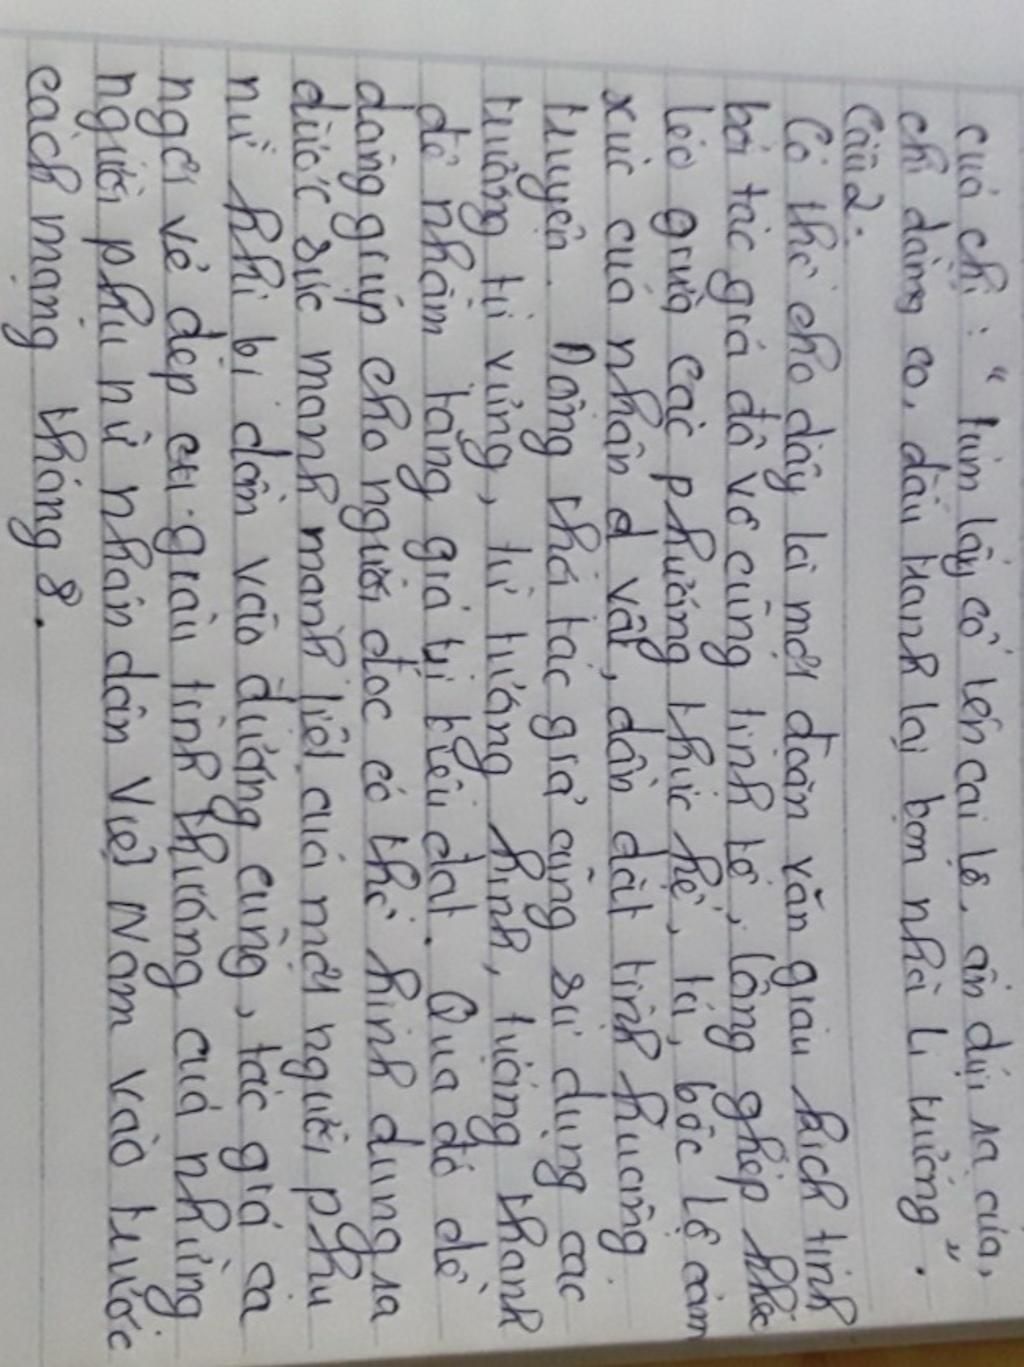 của chị: "túm lấy cổ tên cai lệ, ấn dúi ra cửa,
chị dằng co, đấu tranh lại bọn nhà lí trưởng".
Câu 2.
Có thể cho đây là một đoạn văn giàu kịch tính
bởi tác giả đã vô cùng tinh tế, lồng ghép khéo
léo giữa các phương thức kể, tả, bộc lộ cảm
xúc của nhân vật, dẫn dắt tình huống
truyện. Đồng thời tác giả cũng sử dụng các
trường từ vựng, từ tượng hình, tượng thanh
để nhằm tăng giá trị biểu đạt. Qua đó dễ
dàng giúp cho người đọc có thể hình dung ra
được sức mạnh mãnh liệt của một người phụ
nữ khi bị dồn vào đường cùng, tác giả ca
ngợi vẻ đẹp giàu tình thương của những
người phụ nữ nhân dân Việt Nam vào trước
cách mạng tháng 8.